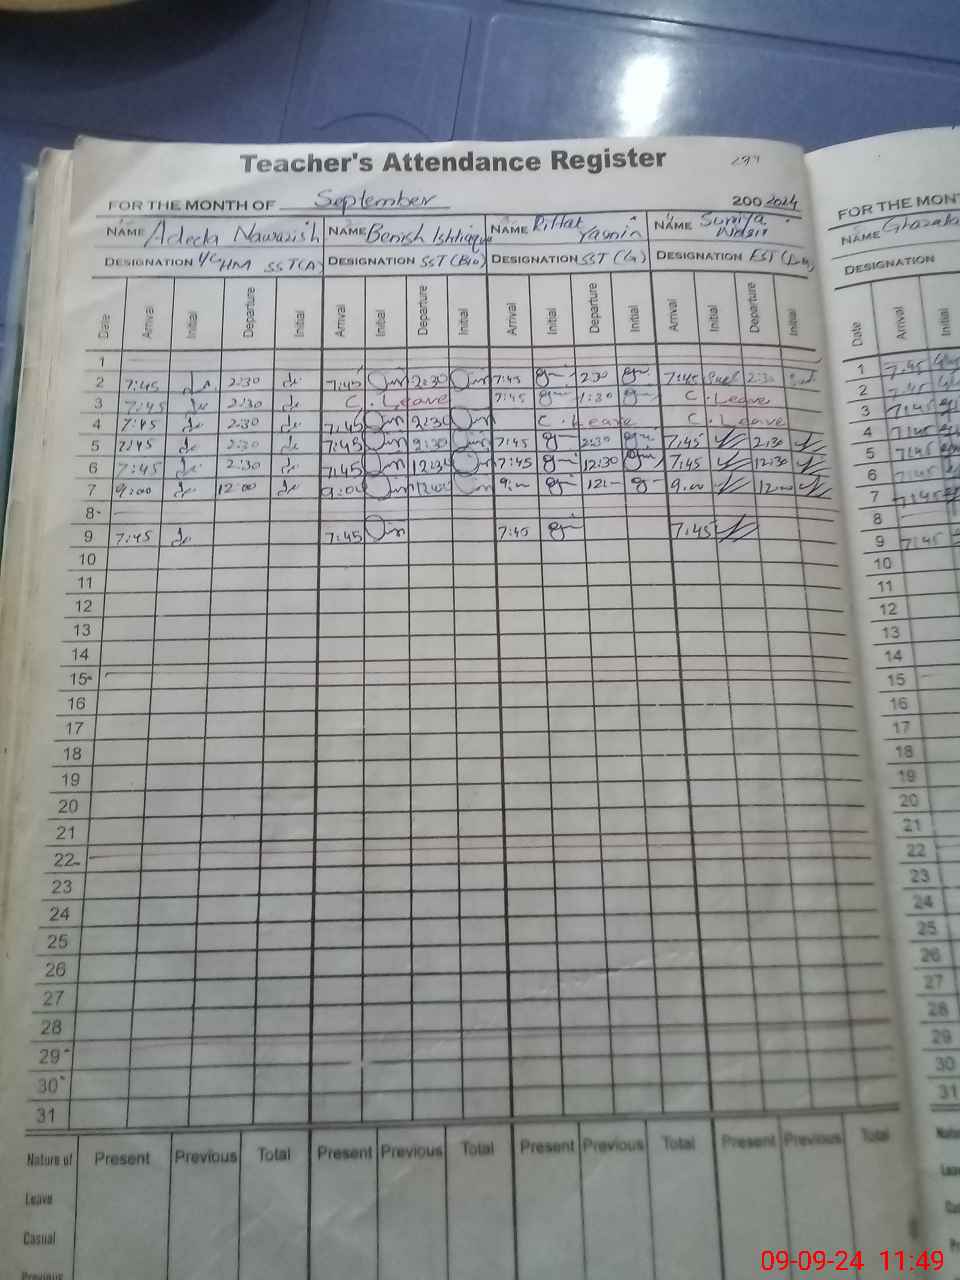 Teacher's Attendance Register
FOR THE MONTH OF September 200 2024
NAME Adeela Nawazish NAME Benish Ishtiaque NAME Riffat Yasmin NAME Sumiya
DESIGNATION I/C HM SST(A) DESIGNATION SST(Bio) DESIGNATION SST(G) DESIGNATION EST
Date Arrival Initial Departure Initial Arrival Initial Departure Initial Arrival Initial Departure Initial Arrival Initial Departure Initial
1
2 7:45 2:30 7:45 2:30 7:45 2:30 7:45 2:30
3 7:45 2:30 C. Leave 7:45 1:30 C. Leave
4 7:45 2:30 7:45 2:30 C. Leave C. Leave
5 7:45 2:30 7:45 2:30 7:45 2:30 7:45 2:30
6 7:45 2:30 7:45 12:30 7:45 12:30 7:45 12:30
7 9:00 12:00 9:00 12:00 9:– 12:– 9:00 12:00
8
9 7:45 7:45 7:45 7:45
10
11
12
13
14
15
16
17
18
19
20
21
22
23
24
25
26
27
28
29
30
31
Nature of Present Previous Total Present Previous Total Present Previous Total Present Previous Total
Leave
Casual
Previous
FOR THE MONT
NAME
DESIGNATION
Date Arrival Initial
1 7:45
2 7:45
3 7:45
4 7:45
5 7:45
6 7:45
7 7:45
8
9 7:45
10
11
12
13
14
15
16
17
18
19
20
21
22
23
24
25
26
27
28
29
30
31
09-09-24 11:49